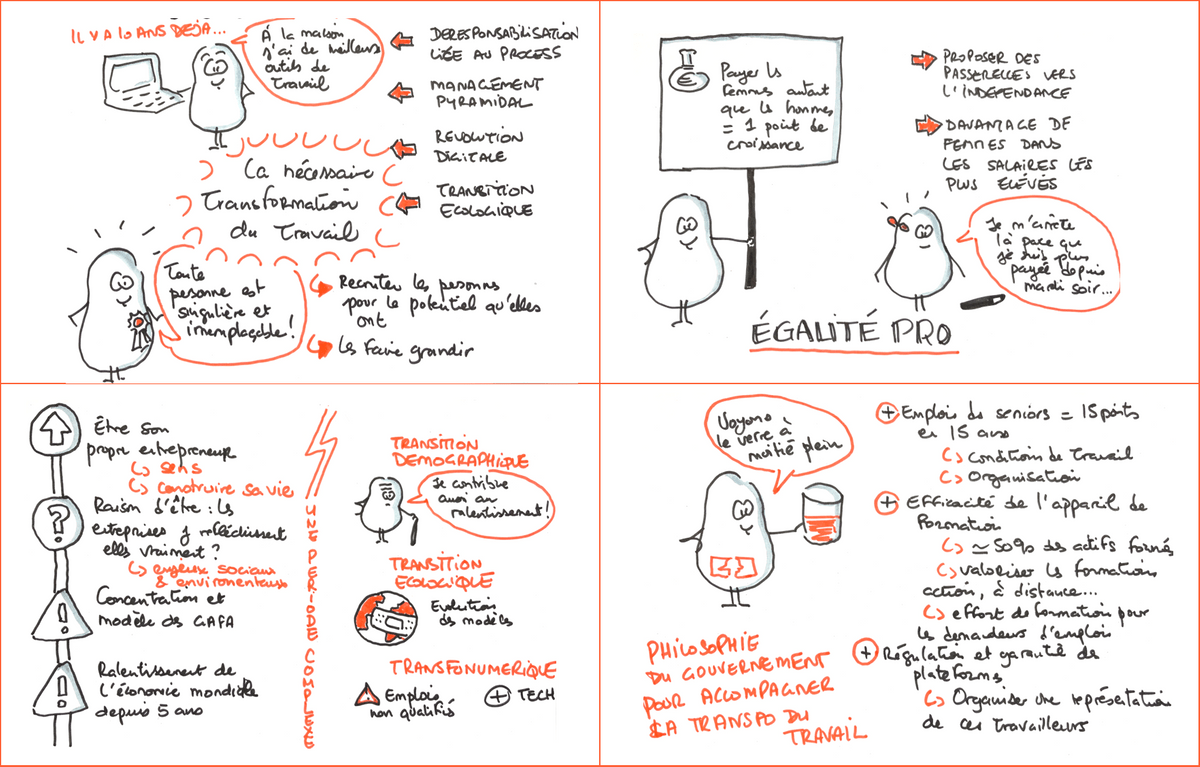 IL Y A 10 ANS DEJA...
À la maison
j'ai de meilleurs
outils de
travail
DERESPONSABILISATION
LIÉE AU PROCESS
MANAGEMENT
PYRAMIDAL
REVOLUTION
DIGITALE
TRANSITION
ECOLOGIQUE
La nécessaire
Transformation
du Travail
Toute
personne est
singulière et
irremplaçable!
Recruter les personnes
pour le potentiel qu'elles
ont
Les faire grandir
Payer les
femmes autant
que les hommes
= 1 point de
croissance
PROPOSER DES
PASSERELLES VERS
L'INDEPENDANCE
DAVANTAGE DE
FEMMES DANS
LES SALAIRES LES
PLUS ELÉVÉS
Je m'arrête
là parce que
je suis plus
payée depuis
mardi soir...
ÉGALITÉ PRO
Être son
propre entrepreneur
sens
construire sa vie
?
Raison d'être : les
entreprises y réfléchissent
elles vraiment ?
enjeux sociaux
& environnementaux
!
Concentration et
modèle des GAFA
!
Ralentissement de
l'économie mondiale
depuis 5 ans
UNE PERIODE COMPLEXE
TRANSITION
DEMOGRAPHIQUE
Je contribue
aussi au
ralentissement!
TRANSITION
ECOLOGIQUE
Evolution
des modèles
TRANSFONUMERIQUE
! Emplois
non qualifiés
+ TECH
Voyons
le verre à
moitié plein
PHILOSOPHIE
DU GOUVERNEMENT
POUR ACCOMPAGNER
LA TRANSFO DU
TRAVAIL
+ Emplois des seniors = 15 points
en 15 ans
conditions de travail
Organisation
+ Efficacité de l'appareil de
Formation
≃ 50% des actifs formés
valoriser les formations
action, à distance...
effort de formation pour
les demandeurs d'emploi
+ Régulation et garantie des
plateforms
Organiser une représentation
de ces travailleurs